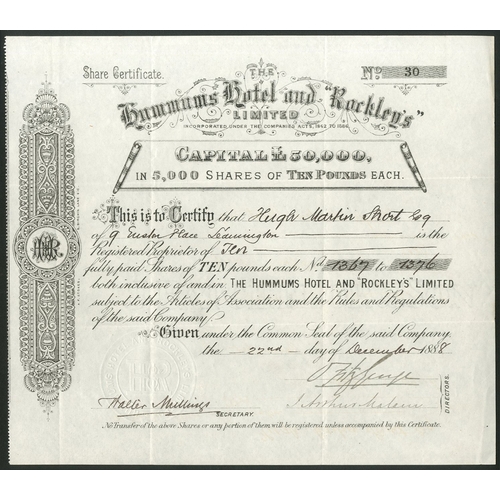 Share Certificate.
No. 30
THE
Hummums Hotel and "Rockley's"
LIMITED
INCORPORATED UNDER THE COMPANIES ACTS, 1862 TO 1886.
CAPITAL £50,000,
IN 5,000 SHARES OF TEN POUNDS EACH.
This is to Certify that Hugh Martin Short Esq
of 9 Euston Place Leamington is the
Registered Proprietor of Ten
fully paid Shares of TEN pounds each No 1367 to 1376
both inclusive of and in THE HUMMUMS HOTEL AND "ROCKLEY'S" LIMITED
subject to the Articles of Association and the Rules and Regulations
of the said Company.
Given under the Common Seal of the said Company,
the 22nd day of December 1888
Walter Mullings
SECRETARY.
DIRECTORS.
No Transfer of the above Shares or any portion of them will be registered unless accompanied by this Certificate.